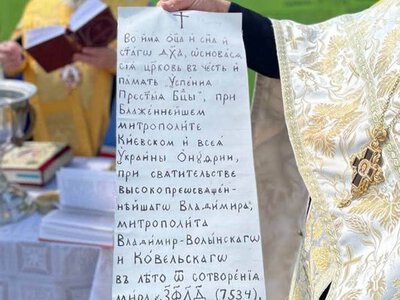 Во имѧ Ѻ҃ца и Сн҃а и
Ст҃агѡ Дх҃а, ѡсновасѧ
сїѧ церковь въ честь и҆
память „Успенїѧ
Прест҃ыѧ Бц҃ы", при
Блаженнейшем
митрополите
Киевском и҆ всеѧ
Украины Онуфрии,
при святительстве
высокопреосвящен-
нейшагѡ Владимира,
митрополита
Владимир-Волынскагѡ
и Ковельскагѡ
въ лѣто ѿ сотворенїѧ
мира ҂З҃ФЛД (7534),